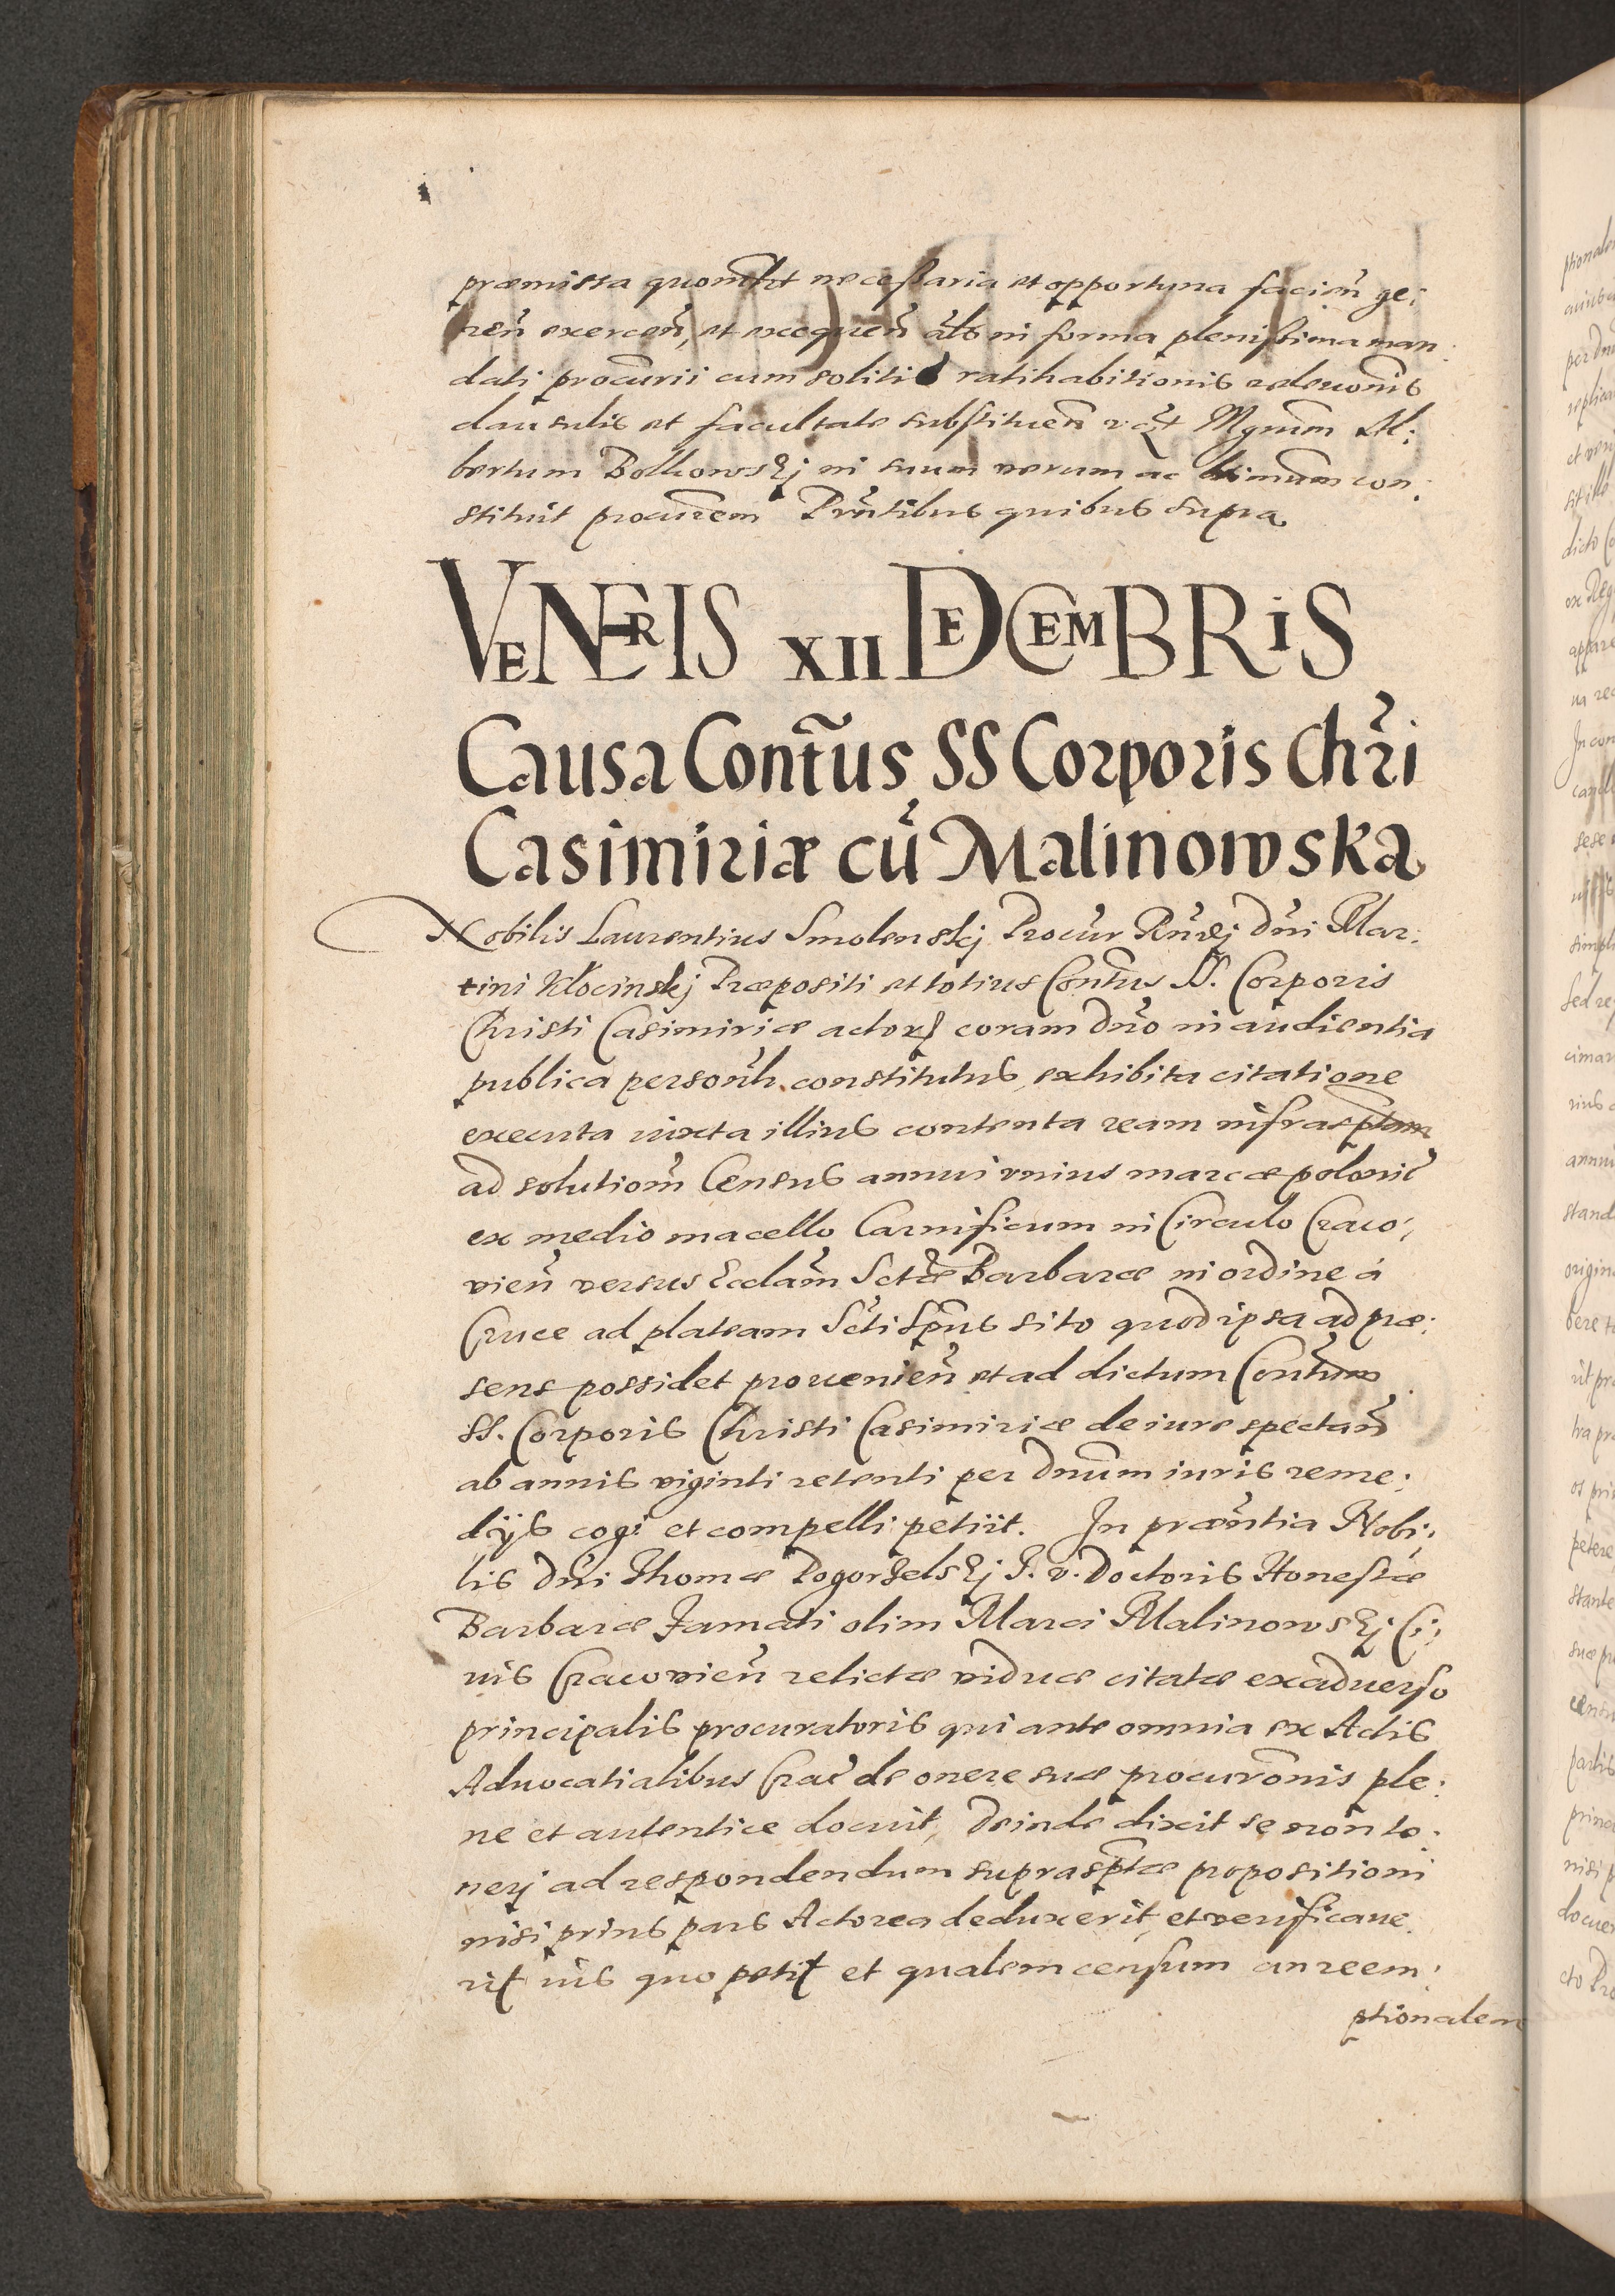 præmissa quomodolibet necessaria et opportuna facień ge:
reń exerceń, et exequeń als in forma plenissima man
dati procurii cum solitis ratihabitionis relevonis
clausulis et facultate substitueń
bertum Bolkowskj in suum verum ac con:
stituit procurem Prntibus quibus supra
VENERIS XII DECEMBRIS
Causa Contus SS Corporis Chri
Casimiriæ cū Malinowska
Nobilis Laurentius Smolenskj Procur Rndj Dni Mar:
tini Klocinskj Præpositi et totius Contus SS. Corporis
Christi Casimiriæ actor coram Dno in audientia
publica personlr constitutus, exhibita citatione
executa iuxta illius contenta ream infrasptam
ad solutiom Census annui unius marcæ polonic
ex medio macello Carnificum in Circulo Craco:
vień versus Ecclam Sctæ Barbaræ in ordine à
Cruce ad plateam Scti Spus sito quod ipsa ad præ:
sens possidet prouenień et ad dictum Contum
SS. Corporis Christi Casimiriæ de iure spectań
ab annis viginti retenti per Dnum iuris reme:
dijs cogi et compelli petiit. In præntia Nobi:
lis Dni Thomæ Pogorzelskj J. V. Doctoris Honestæ
Barbaræ Famati olim Marci Malinowskj Ci:
uis Cracovień relictæ viduæ citatæ exaduerso
principalis procuratoris qui ante omnia ex Actis
Aduocatialibus Crac de onere suæ procuronis ple:
ne et autentice docuit, Deinde dixit se non te:
nerj ad respondendum suprasptæ propositioni
nisi prius pars Actorea deduxerit, et verificaue
rit ius quo petit et qualem censum an reem:
ptionalem